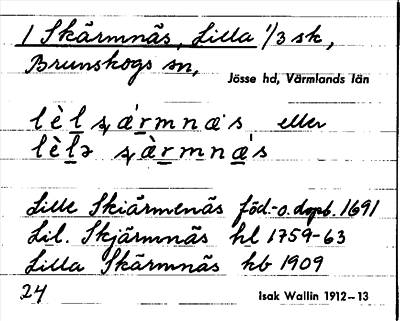 1 Skärmnäs, Lilla 1/3 sk,
Brunskogs sn,
Jösse hd, Värmlands län
eller
Lille Skiärmenäs föd.-o. dopb. 1691
Lil. Skjärmnäs hl 1759-63
Lilla Skärmnäs kb 1909
24
Isak Wallin 1912-13